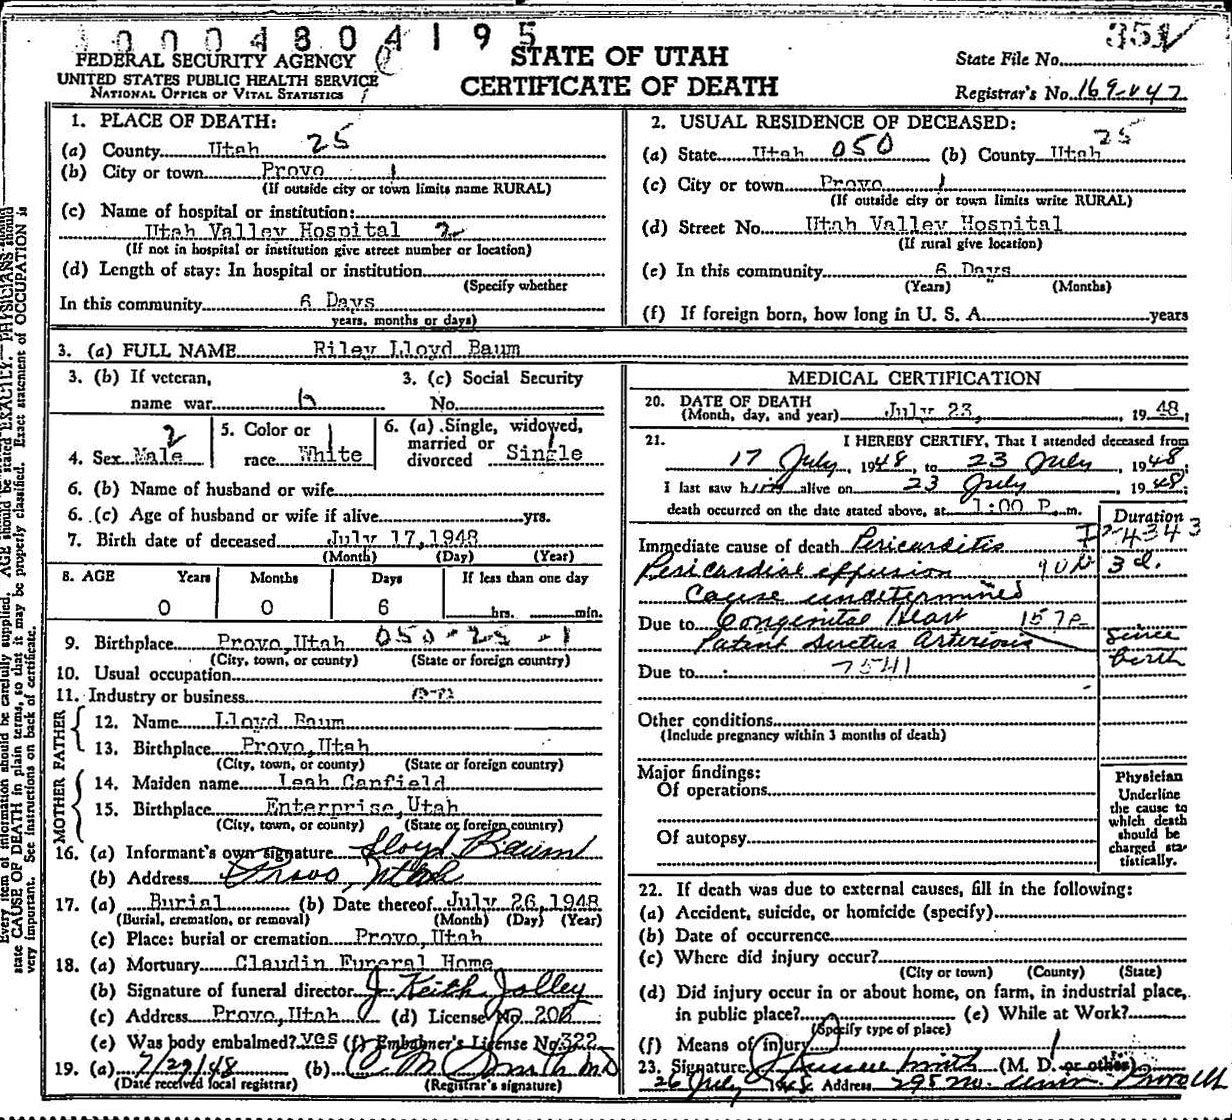 0004804195
351
FEDERAL SECURITY AGENCY
UNITED STATES PUBLIC HEALTH SERVICE
NATIONAL OFFICE OF VITAL STATISTICS
STATE OF UTAH
CERTIFICATE OF DEATH
State File No.
Registrar's No. 169-047
1. PLACE OF DEATH:
(a) County Utah 25
(b) City or town Provo 1
(If outside city or town limits name RURAL)
(c) Name of hospital or institution:
Utah Valley Hospital 2
(If not in hospital or institution give street number or location)
(d) Length of stay: In hospital or institution
(Specify whether
In this community 6 Days
years, months or days)
2. USUAL RESIDENCE OF DECEASED:
(a) State Utah 050 (b) County Utah 25
(c) City or town Provo 1
(If outside city or town limits write RURAL)
(d) Street No. Utah Valley Hospital
(If rural give location)
(e) In this community 6 Days
(Years) (Months)
(f) If foreign born, how long in U. S. A. years
3. (a) FULL NAME Riley Lloyd Baum
3. (b) If veteran, 3. (c) Social Security
name war No.
4. Sex Male 2 5. Color or race White 1 6. (a) Single, widowed, married or divorced Single 1
6. (b) Name of husband or wife
6. (c) Age of husband or wife if alive yrs.
7. Birth date of deceased July 17, 1948
(Month) (Day) (Year)
8. AGE Years Months Days If less than one day
0 0 6 hrs. min.
9. Birthplace Provo, Utah 050-25-1
(City, town, or county) (State or foreign country)
10. Usual occupation
11. Industry or business
FATHER
12. Name Lloyd Baum
13. Birthplace Provo, Utah
(City, town, or county) (State or foreign country)
MOTHER
14. Maiden name Leah Canfield
15. Birthplace Enterprise, Utah
(City, town, or county) (State or foreign country)
16. (a) Informant's own signature Lloyd Baum
(b) Address Provo, Utah
17. (a) Burial (b) Date thereof July 26, 1948
(Burial, cremation, or removal) (Month) (Day) (Year)
(c) Place: burial or cremation Provo, Utah
18. (a) Mortuary Claudin Funeral Home
(b) Signature of funeral director J. Keith Jolley
(c) Address Provo, Utah (d) License No. 206
(e) Was body embalmed? yes (f) Embalmer's License No. 322
19. (a) 7/29/48 (b) C M Smith MD
(Date received local registrar) (Registrar's signature)
MEDICAL CERTIFICATION
20. DATE OF DEATH
(Month, day, and year) July 23, 1948;
21. I HEREBY CERTIFY, That I attended deceased from
17 July, 1948, to 23 July, 1948;
I last saw him alive on 23 July, 1948;
death occurred on the date stated above, at 1:00 P. m.
Duration
Immediate cause of death Pericarditis 4343
Pericardial effusion 3 d.
Cause undetermined
Due to Congenital Heart 157P
Patent Ductus Arteriosis since
Due to 7541 birth
Other conditions
(Include pregnancy within 3 months of death)
Major findings:
Of operations
Of autopsy
Physician
Underline
the cause to
which death
should be
charged sta-
tistically.
22. If death was due to external causes, fill in the following:
(a) Accident, suicide, or homicide (specify)
(b) Date of occurrence
(c) Where did injury occur?
(City or town) (County) (State)
(d) Did injury occur in or about home, on farm, in industrial place,
in public place? (e) While at Work?
(Specify type of place)
(f) Means of injury
23. Signature Smith (M. D. or other)
26 July 1948 Address 295 No. Univ. Provo Ut
Every item of information should be carefully supplied. AGE should be stated EXACTLY. PHYSICIANS should
state CAUSE OF DEATH in plain terms, so that it may be properly classified. Exact statement of OCCUPATION is
very important. See instructions on back of certificate.